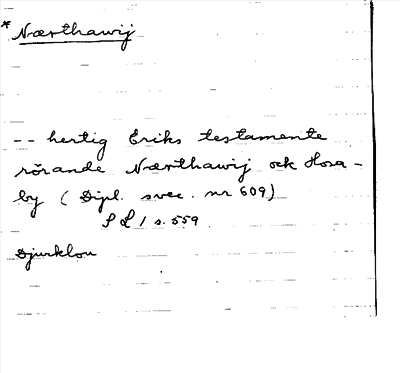 * Nærthawij
-- hertig Eriks testamente
rörande Nærthawij och Hosa-
by (Dipl. svec. nr 609)
S L 1 s. 559
Djurklou